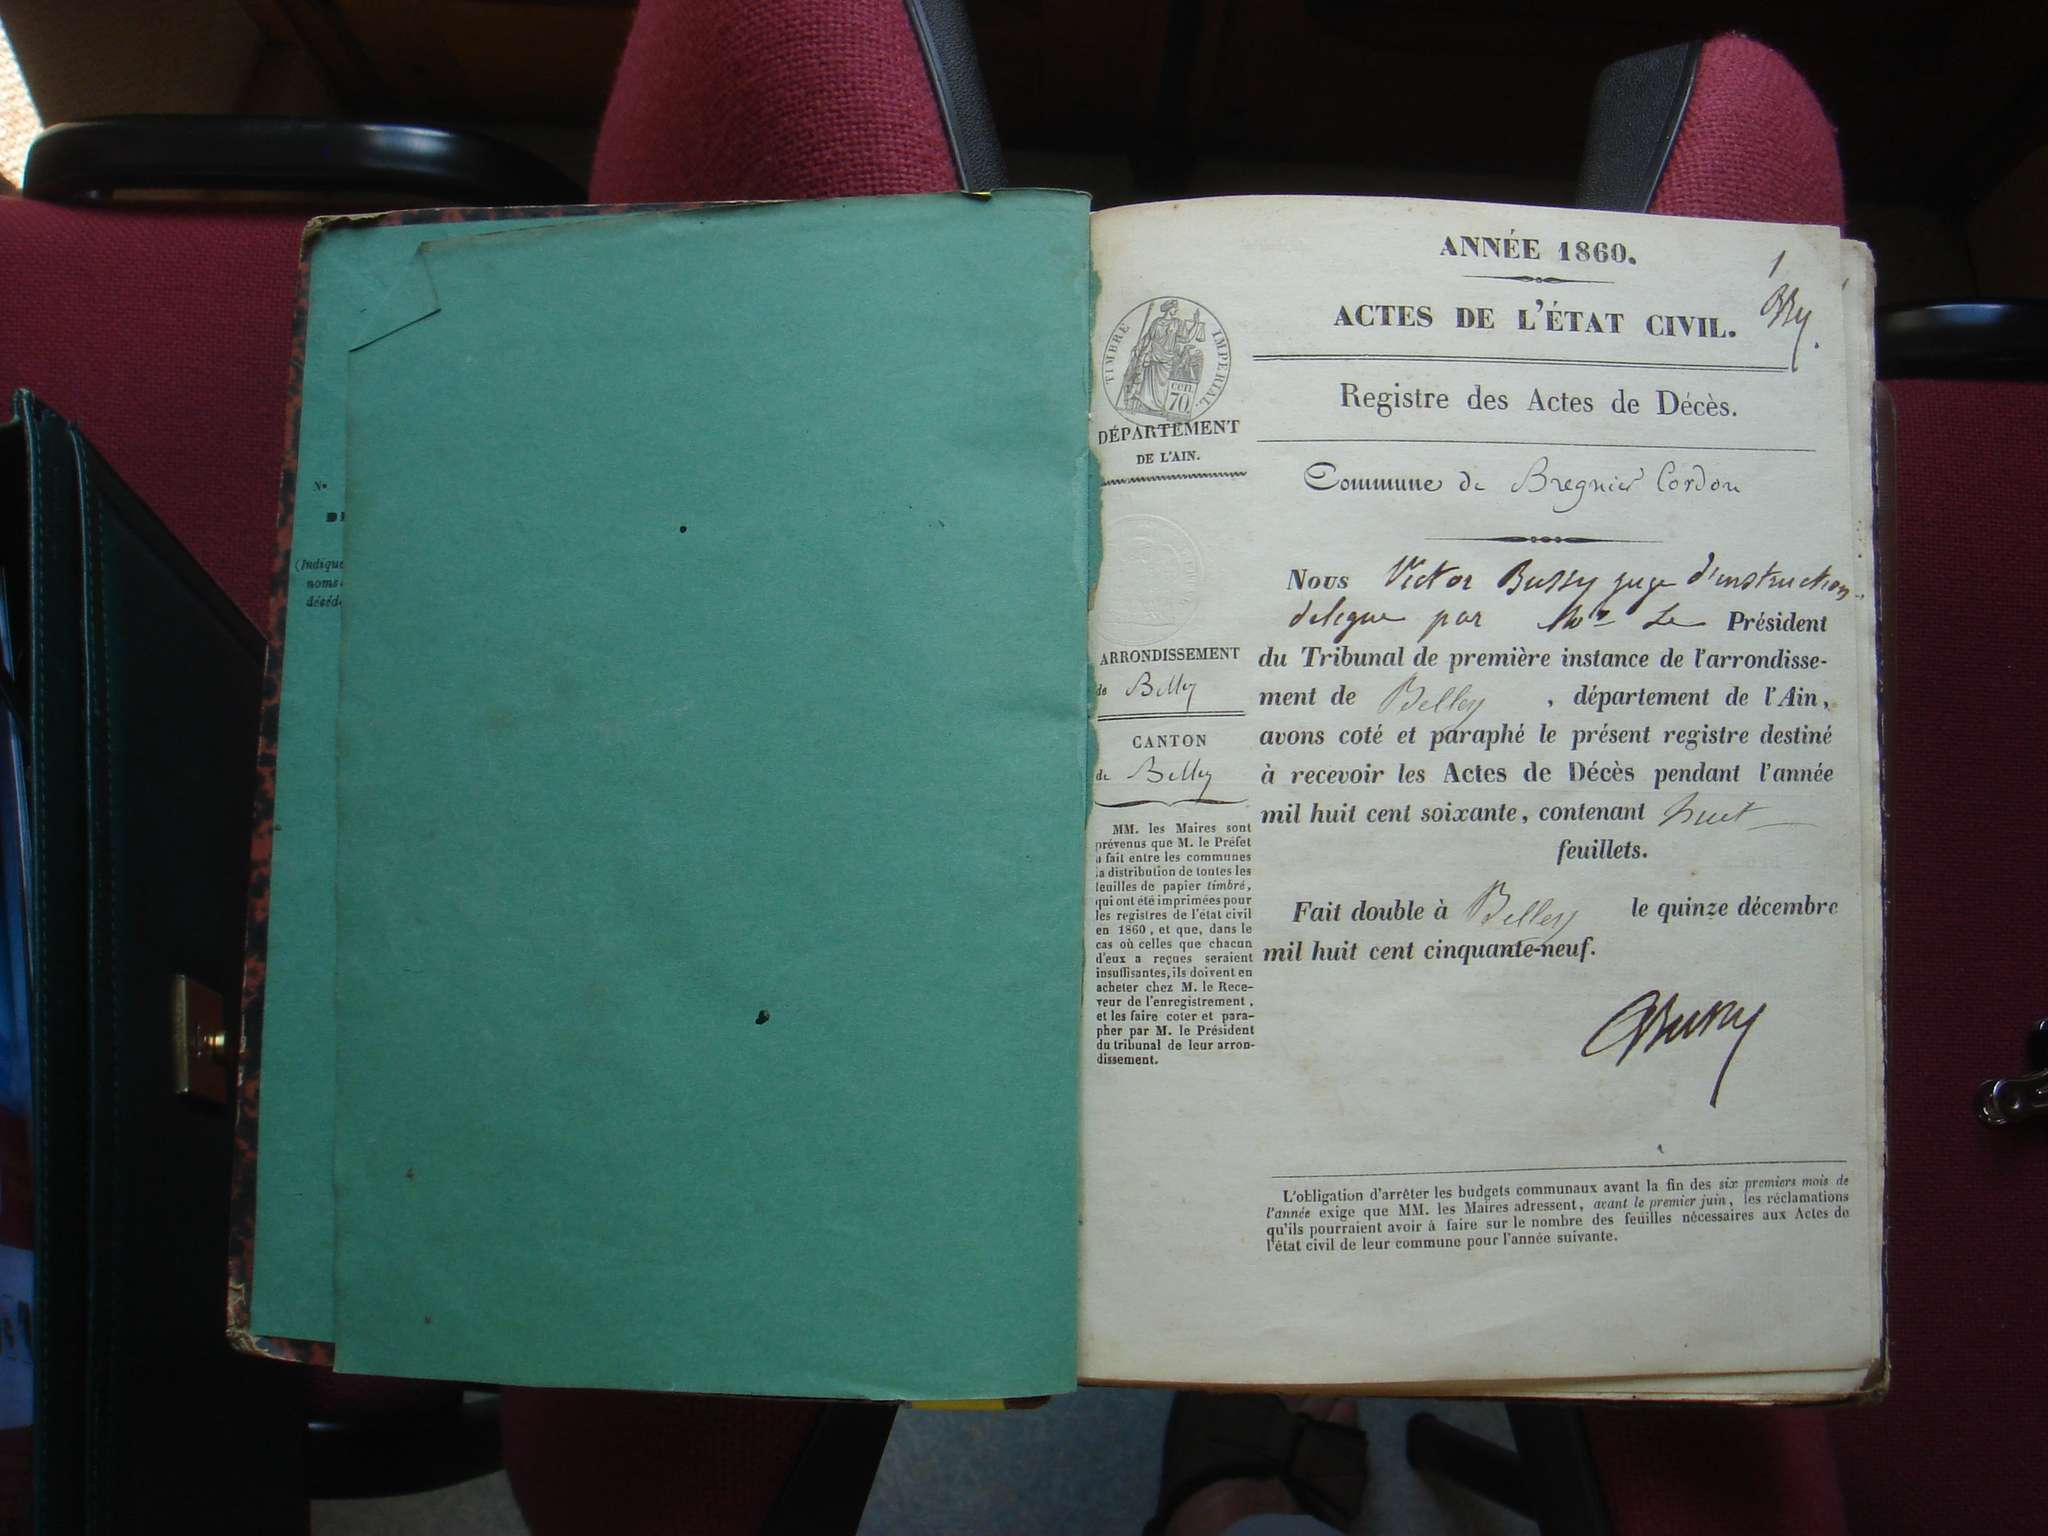 N°
(Indique
noms
décéd
ANNÉE 1860.
1
ACTES DE L'ÉTAT CIVIL.
Registre des Actes de Décès.
TIMBRE IMPERIAL
70 cen
DÉPARTEMENT
DE L'AIN.
Commune de Bregnier Cordon
Nous Victor Bussy juge d'instruction
delegue par Mr Le Président
du Tribunal de première instance de l'arrondisse-
ment de Belley, département de l'Ain,
avons coté et paraphé le présent registre destiné
à recevoir les Actes de Décès pendant l'année
mil huit cent soixante, contenant huit
feuillets.
Fait double à Belley le quinze décembre
mil huit cent cinquante-neuf.
Bussy
ARRONDISSEMENT
de Belley
CANTON
de Belley
MM. les Maires sont
prévenus que M. le Préfet
a fait entre les communes
la distribution de toutes les
feuilles de papier timbré,
qui ont été imprimées pour
les registres de l'état civil
en 1860, et que, dans le
cas où celles que chacun
d'eux a reçues seraient
insuffisantes, ils doivent en
acheter chez M. le Rece-
veur de l'enregistrement,
et les faire coter et para-
pher par M. le Président
du tribunal de leur arron-
dissement.
L'obligation d'arrêter les budgets communaux avant la fin des six premiers mois de
l'année exige que MM. les Maires adressent, avant le premier juin, les réclamations
qu'ils pourraient avoir à faire sur le nombre des feuilles nécessaires aux Actes de
l'état civil de leur commune pour l'année suivante.